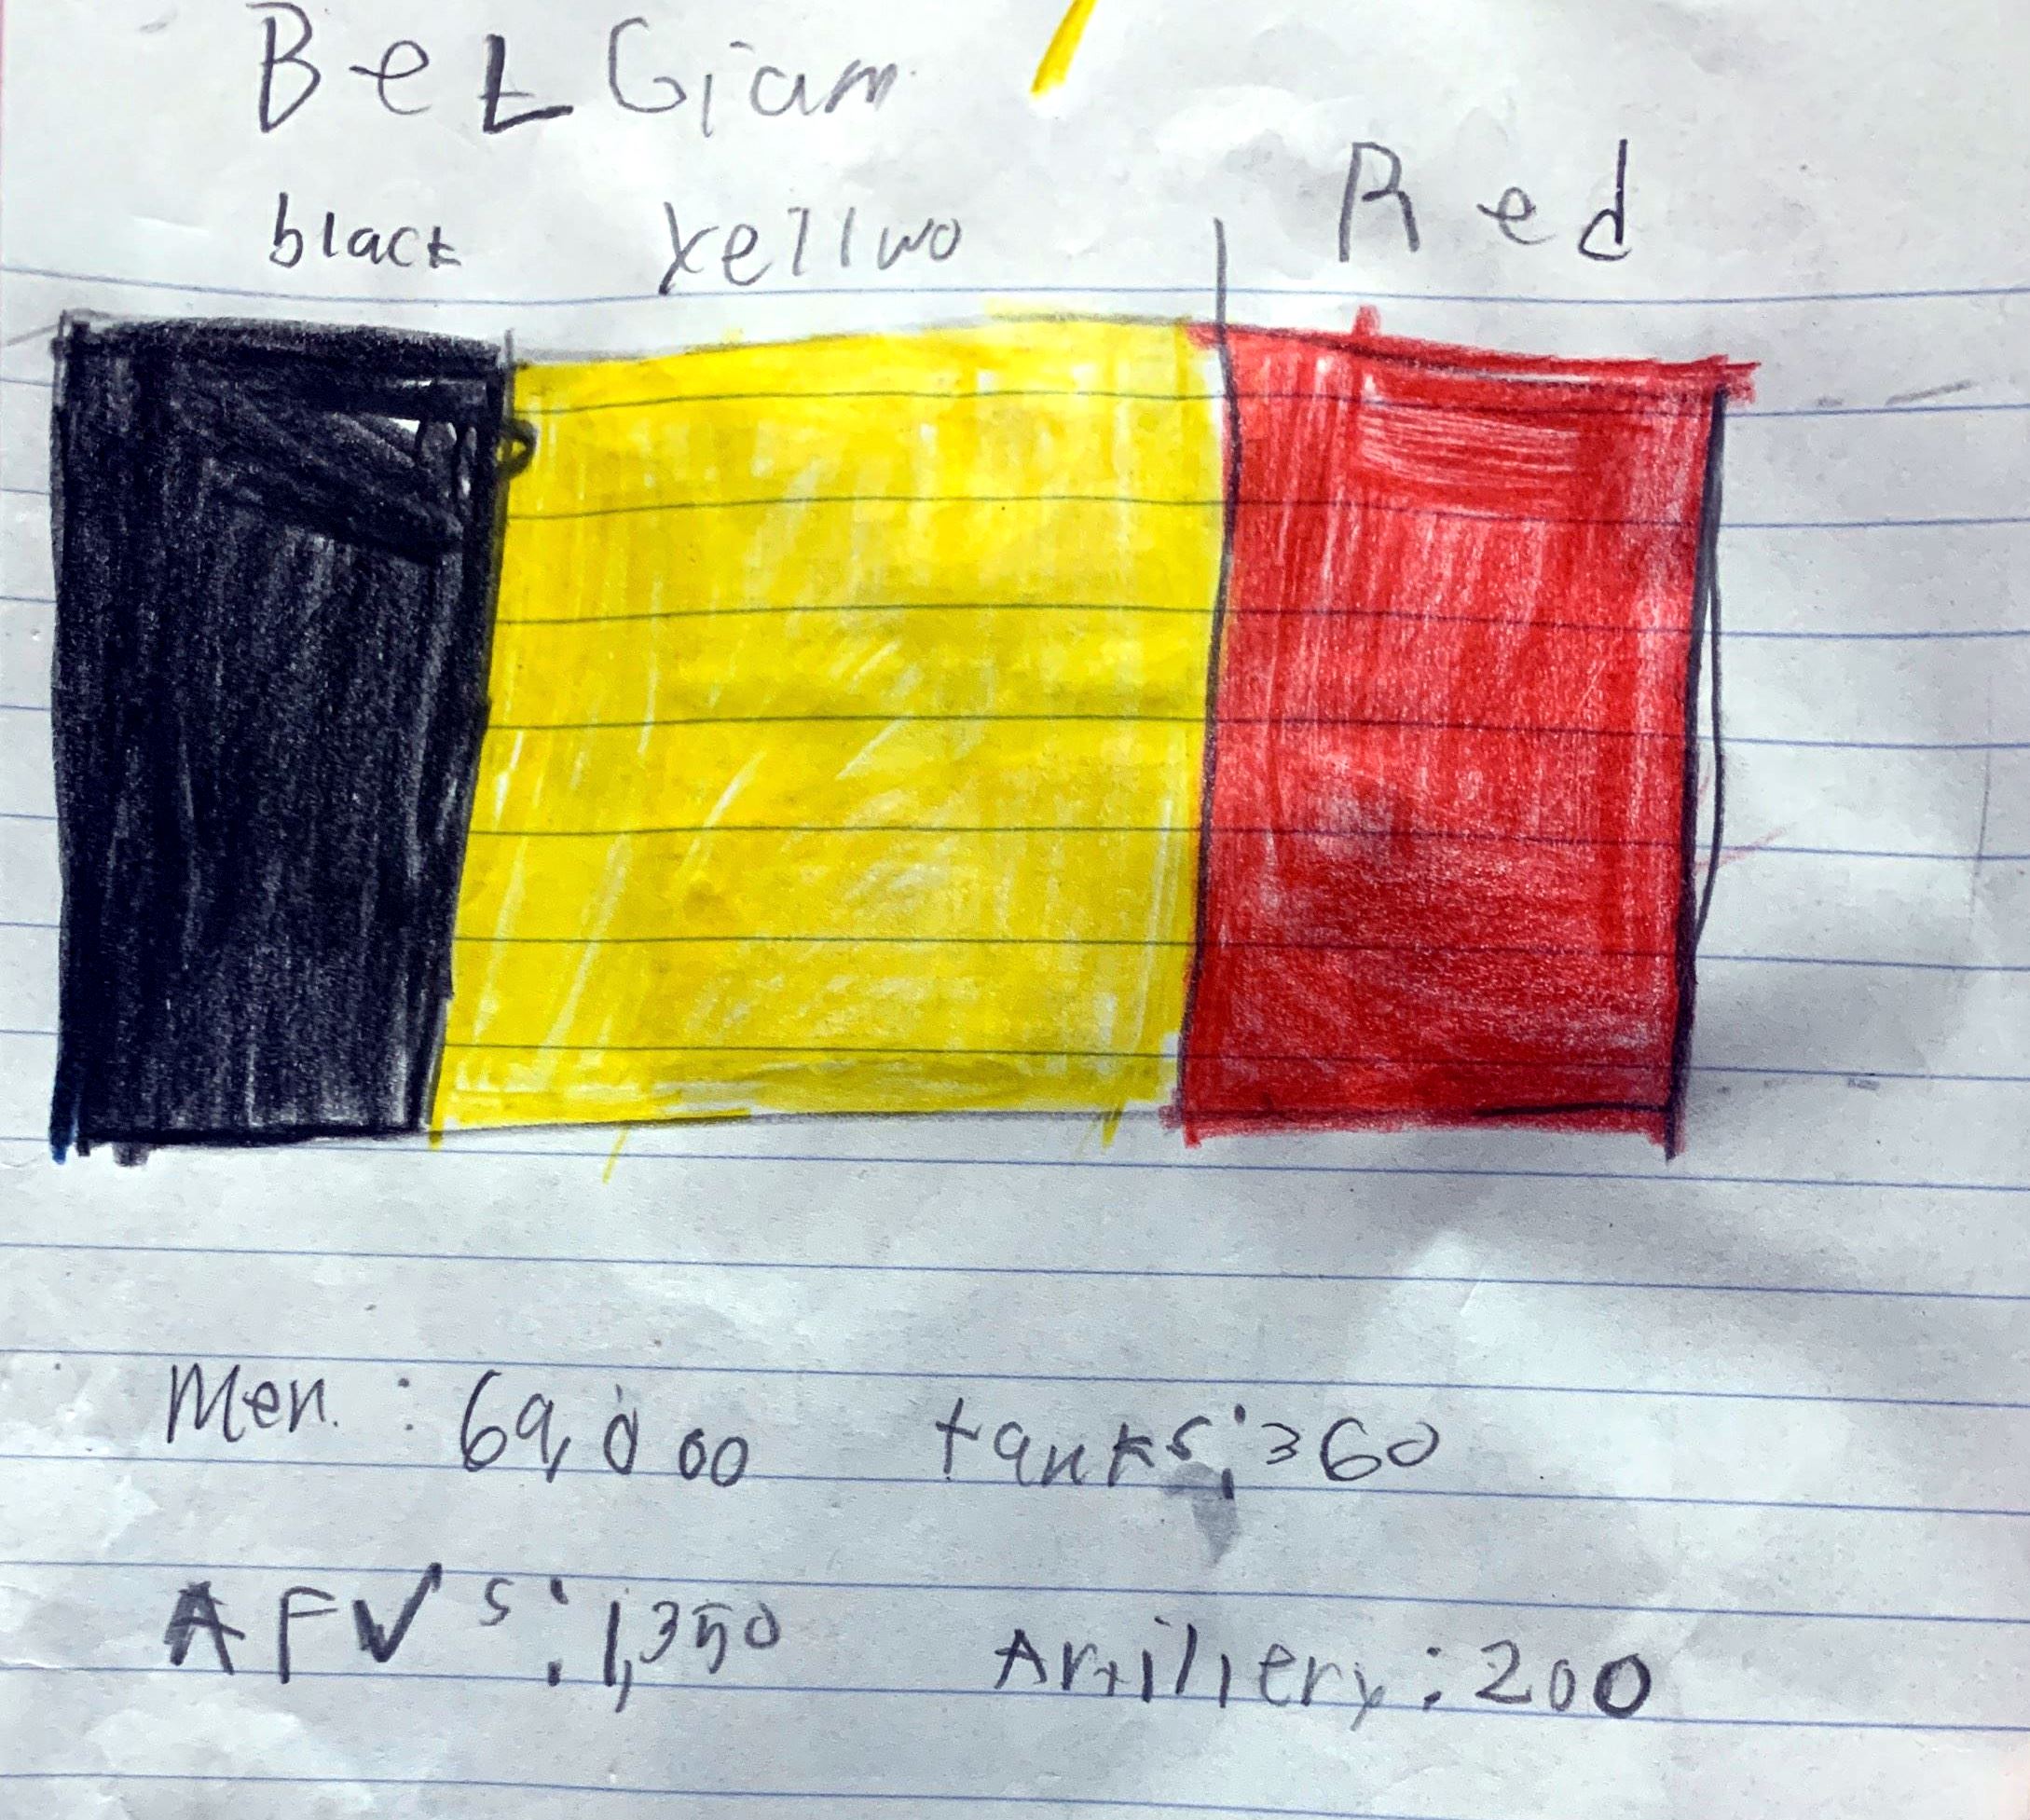 BeLGiam
black yellwo Red
Men : 69,000 tanks: 360
AFVs: 1,350 Artiliery: 200